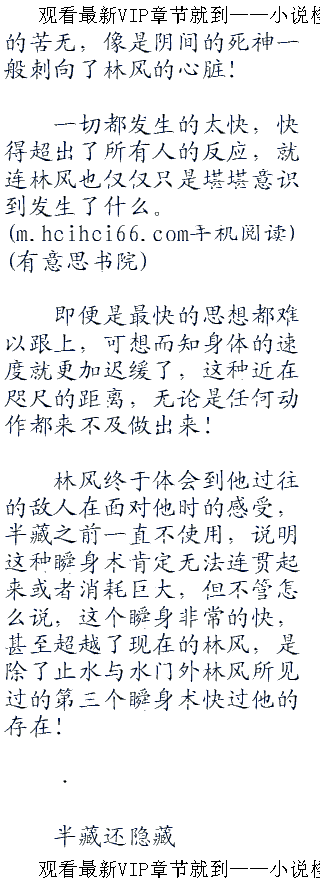 观看最新VIP章节就到——小说
的苦无，像是阴间的死神一
般刺向了林风的心脏！
一切都发生的太快，快
得超出了所有人的反应，就
连林风也仅仅只是堪堪意识
到发生了什么。
(m.hcihci66.com手机阅读)
(有意思书院)
即便是最快的思想都难
以跟上，可想而知身体的速
度就更加迟缓了，这种近在
咫尺的距离，无论是任何动
作都来不及做出来！
林风终于体会到他过往
的敌人在面对他时的感受，
半藏之前一直不使用，说明
这种瞬身术肯定无法连贯起
来或者消耗巨大，但不管怎
么说，这个瞬身非常的快，
甚至超越了现在的林风，是
除了止水与水门外林风所见
过的第三个瞬身术快过他的
存在！
.
半藏还隐藏
观看最新VIP章节就到——小说